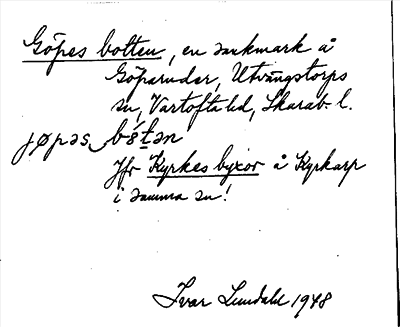 Göpes botten, en sankmark å
Göparudar, Utvängstorps
sn, Vartofta hd, Skarab. l.
jøpəs bótən
Jfr Kyrkes byxor å Kyrkarp
i samma sn!
Ivar Lundahl 1948